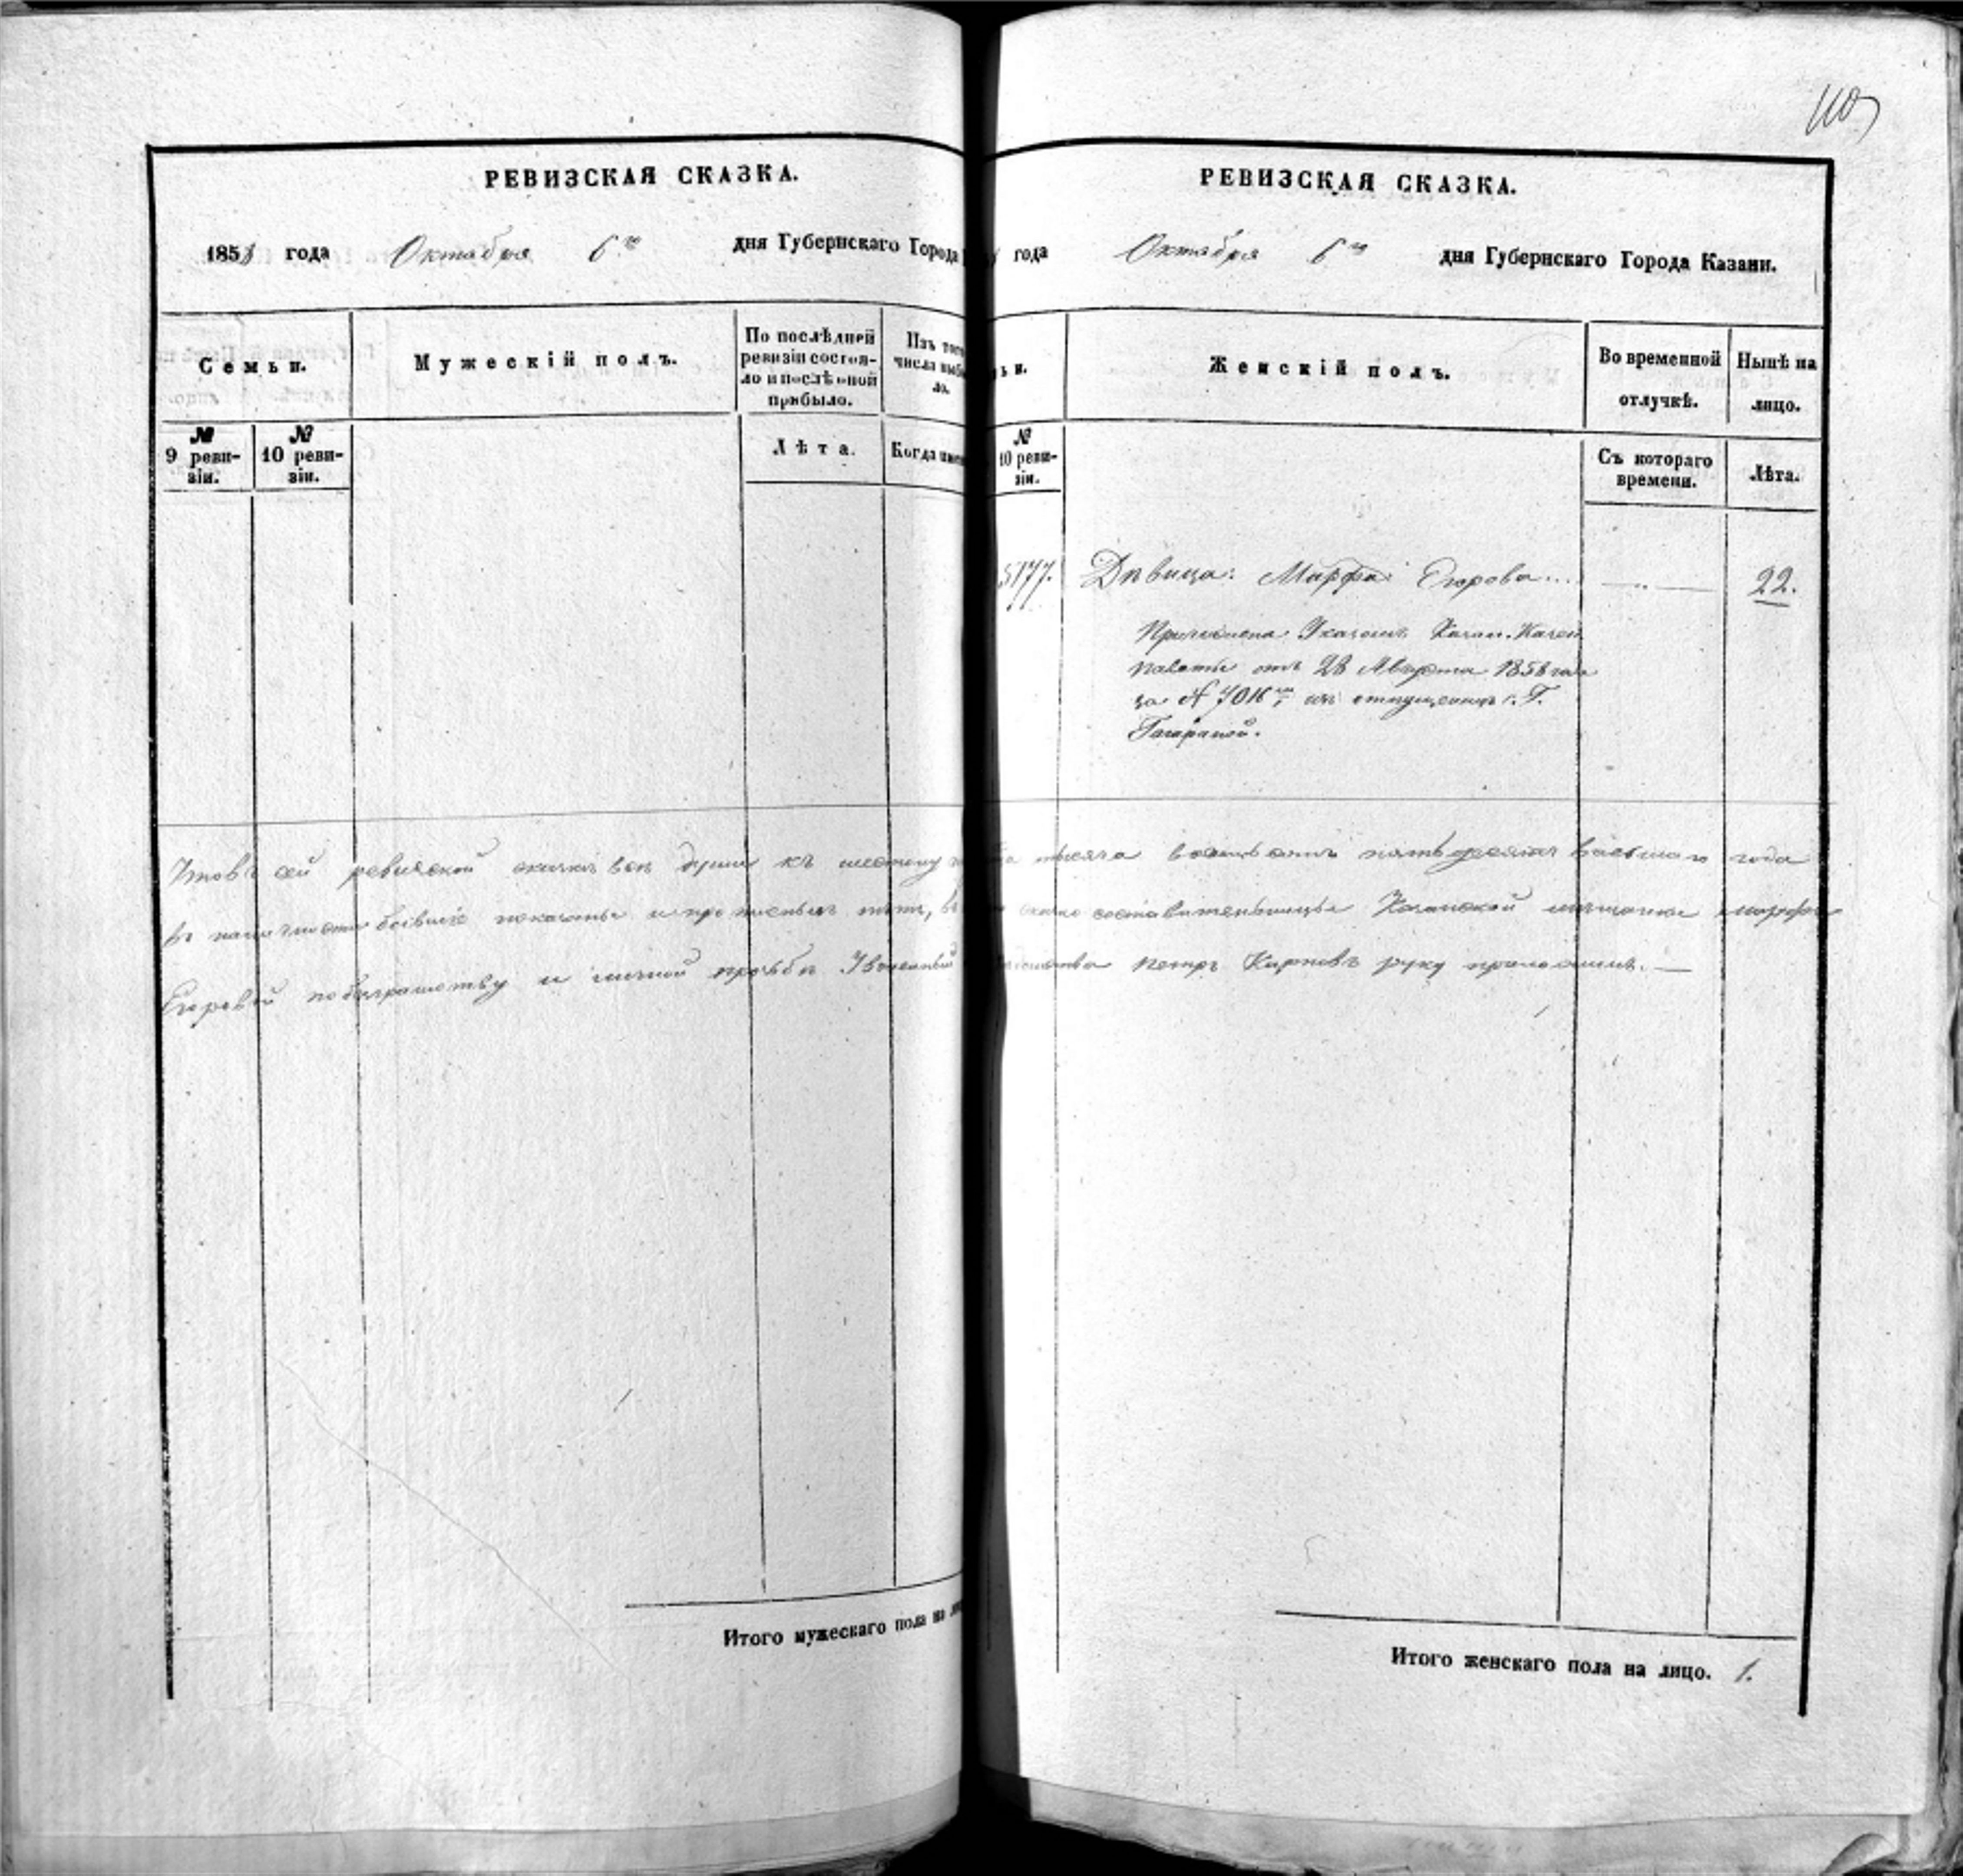 110
РЕВИЗСКАЯ СКАЗКА.
1858 года Октября 6го дня Губернскаго Города
Семьи.
Мужескій полъ.
По послѣдней
ревизіи состоя-
ло и послѣ оной
прибыло.
Изъ того
числа выбы
ло.
№
9 реви-
зіи.
№
10 реви-
зіи.
Лѣта.
Когда имен
РЕВИЗСКАЯ СКАЗКА.
года Октября 6го дня Губернскаго Города Казани.
ьи.
Женскій полъ.
Во временной
отлучкѣ.
Нынѣ на
лицо.
№
10 реви-
зіи.
Съ котораго
времени.
Лѣта.
5177. Дѣвица: Марфа Егорова... 22.
Причислена Указомъ Казан. Казен
палаты отъ 28 Августа 1858 года
за № 7016 изъ отпущенницъ г. Г.
Что въ сей ревизской сказкѣ всѣ души къ шестому тысяча восемь сотъ пятьдесятъ восьмаго года
въ наличности бывшіе показаны и прописныхъ нѣтъ, въ сказкѣ составительницы Казанской мѣщанки Марфы
Егоровой по безграмотству и личной прозьбѣ Петръ Карповъ руку приложилъ.
Итого мужескаго пола на ли
Итого женскаго пола на лицо. 1.